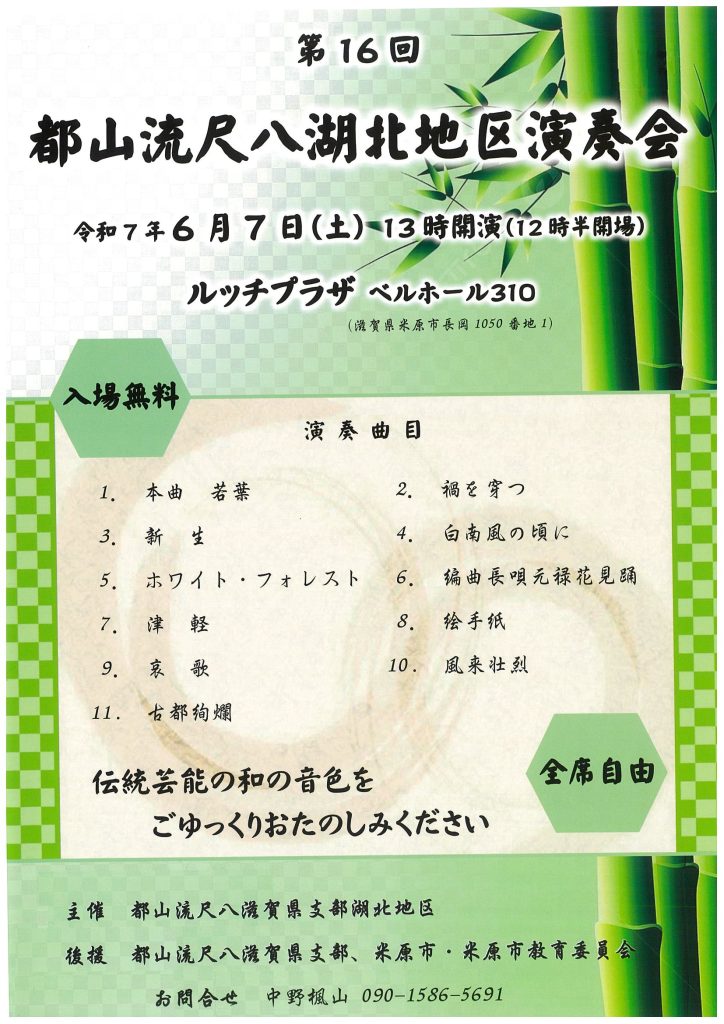 第16回
都山流尺八湖北地区演奏会
令和7年6月7日(土) 13時開演(12時半開場)
ルッチプラザ ベルホール310
(滋賀県米原市長岡1050番地1)
入場無料
演奏曲目
1. 本曲 若葉
2. 禍を穿つ
3. 新 生
4. 白南風の頃に
5. ホワイト・フォレスト
6. 編曲長唄元禄花見踊
7. 津 軽
8. 絵手紙
9. 哀 歌
10. 風来壮烈
11. 古都絢爛
全席自由
伝統芸能の和の音色を
ごゆっくりおたのしみください
主催 都山流尺八滋賀県支部湖北地区
後援 都山流尺八滋賀県支部、米原市・米原市教育委員会
お問合せ 中野楓山 090-1586-5691